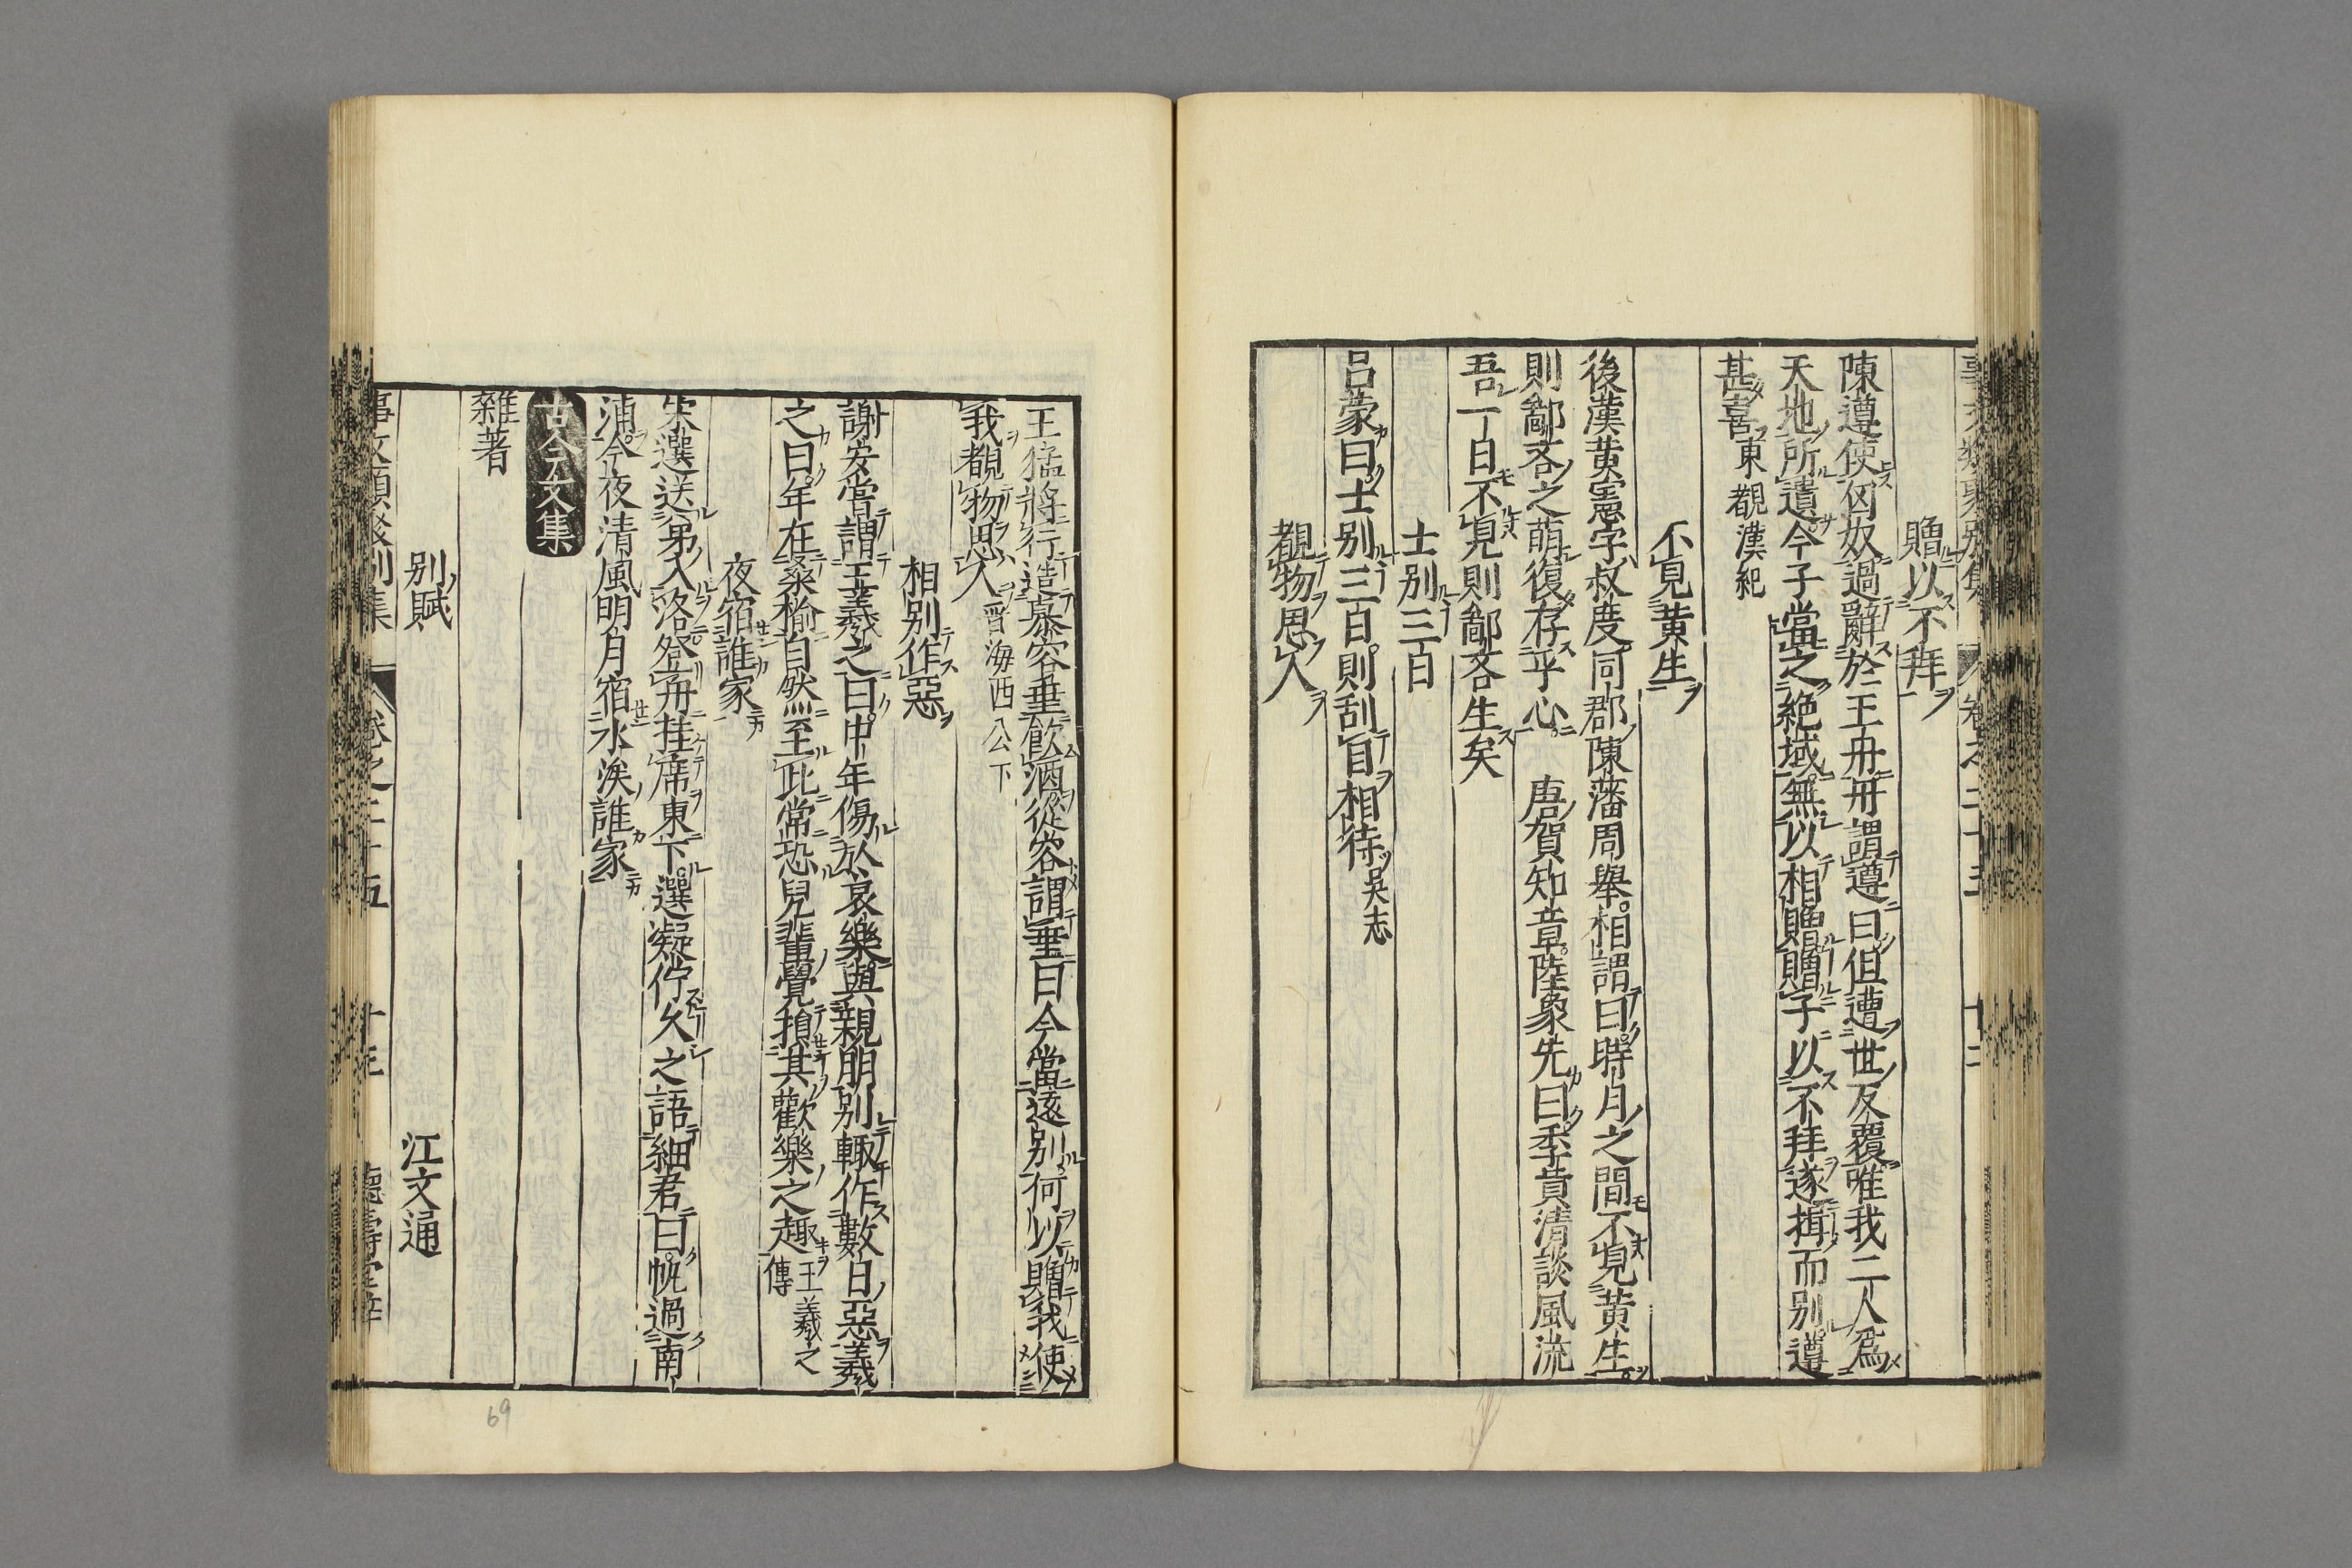 贈以不拜
陳遵使匈奴過辭於王丹丹謂遵曰但遭世反覆唯我二人爲
天地所遺今子當之絶域無以相贈贈子以不拜遂揖而別遵
甚喜東觀漢紀
不見黄生
後漢黄憲字叔度同郡陳藩周舉相謂曰時月之間不見黄生
則鄙吝之萌復存乎心 唐賀知章陸象先曰季真清談風流
吾一日不見則鄙吝生矣
士別三日
呂蒙曰士別三日則刮目相待吳志
覩物思人
王猛將行造慕容垂飮酒從容謂垂曰今當遠別何以贈我使
我覩物思人晉海西公下
相別作惡
謝安嘗謂王羲之曰中年傷於哀樂與親朋別輒作數日惡羲
之曰年在桑榆自然至此常恐兒輩覺損其歡樂之趣王羲之傳
夜宿誰家
宋選送弟入洛登舟挂席東下選凝佇久之語細君曰帆過南
浦今夜清風明月宿水涘誰家
古今文集
雜著
別賦 江文通
事文類聚別集 卷之二十五 十三